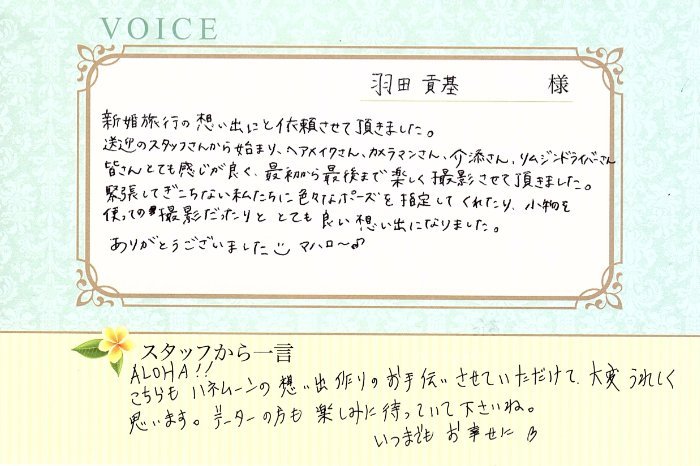 VOICE
羽田 貢基 様
新婚旅行の想い出にと依頼させて頂きました。
送迎のスタッフさんから始まり、ヘアメイクさん、カメラマンさん、介添さん、リムジンドライバーさん
皆さんとても感じが良く、最初から最後まで楽しく撮影させて頂きました。
緊張してぎこちない私たちに色々なポーズを指定してくれたり、小物を
使っての撮影だったりと とても良い想い出になりました。
ありがとうございました マハロ〜♪
スタッフから一言
ALOHA!!
こちらも ハネムーンの想い出作りのお手伝いさせていただけて、大変うれしく
思います。データーの方も楽しみに待っていて下さいね。
いつまでも お幸せに